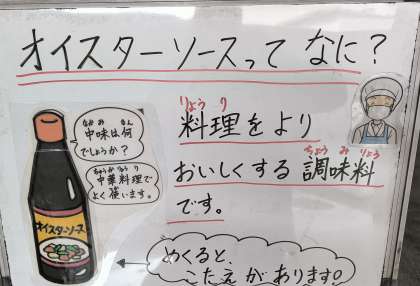 オイスターソースって なに？
りょうり
料理をより
ちょうみりょう
おいしくする 調味料
です。
なかみ なん
中味は何
でしょうか？
ちゅうかりょうり
中華料理で
よく使います。
オイスターソース
めくると、
こたえがあります。